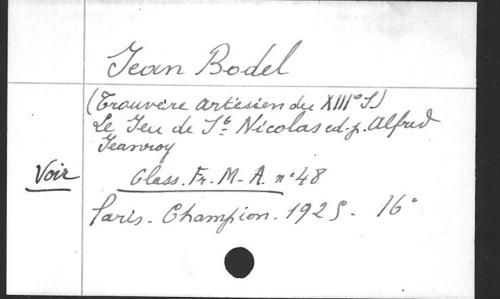 Jean Bodel
(Trouvère artésien du XIII° S)
Le Jeu de St Nicolas ed. p. Alfred
Jeanroy
Voir Class. Fr. M-A. n° 48
Paris. Champion. 1925. 16°